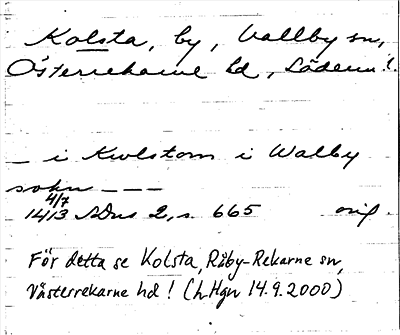 Kolsta, by, Vallby sn,
Österrekarne hd, Söderm. l.
_ i Kwlstom i Walby
sokn _ _ _
4/7
1413 SDns 2, s. 665 orig.
För detta se Kolsta, Råby-Rekarne sn,
Västerrekarne hd! (LHgn 14.9.2000)